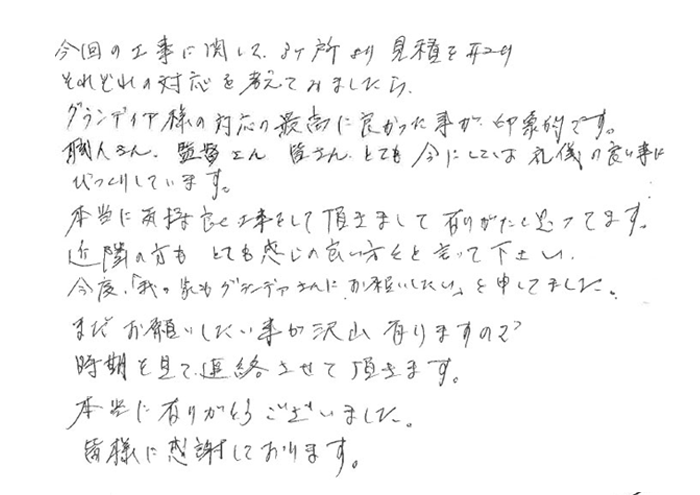 今回の工事に関して、3ヶ所より見積を
それぞれの対応を考えてみましたら、
グランディア様の対応の最高に良かった事が印象的です。
職人さん、監督さん 皆さん、とても今にしては礼儀の良い事に
びっくりしています。
本当に気持良く工事をして頂きまして有りがたく思ってます。
近隣の方も とても感じの良い方々と言って下さい、
今度、「我が家もグランディアさんにお願いしたい」と申してました。
まだお願いしたい事が沢山有りますので
時期を見て連絡させて頂きます。
本当に有りがとうございました。
皆様に感謝しております。